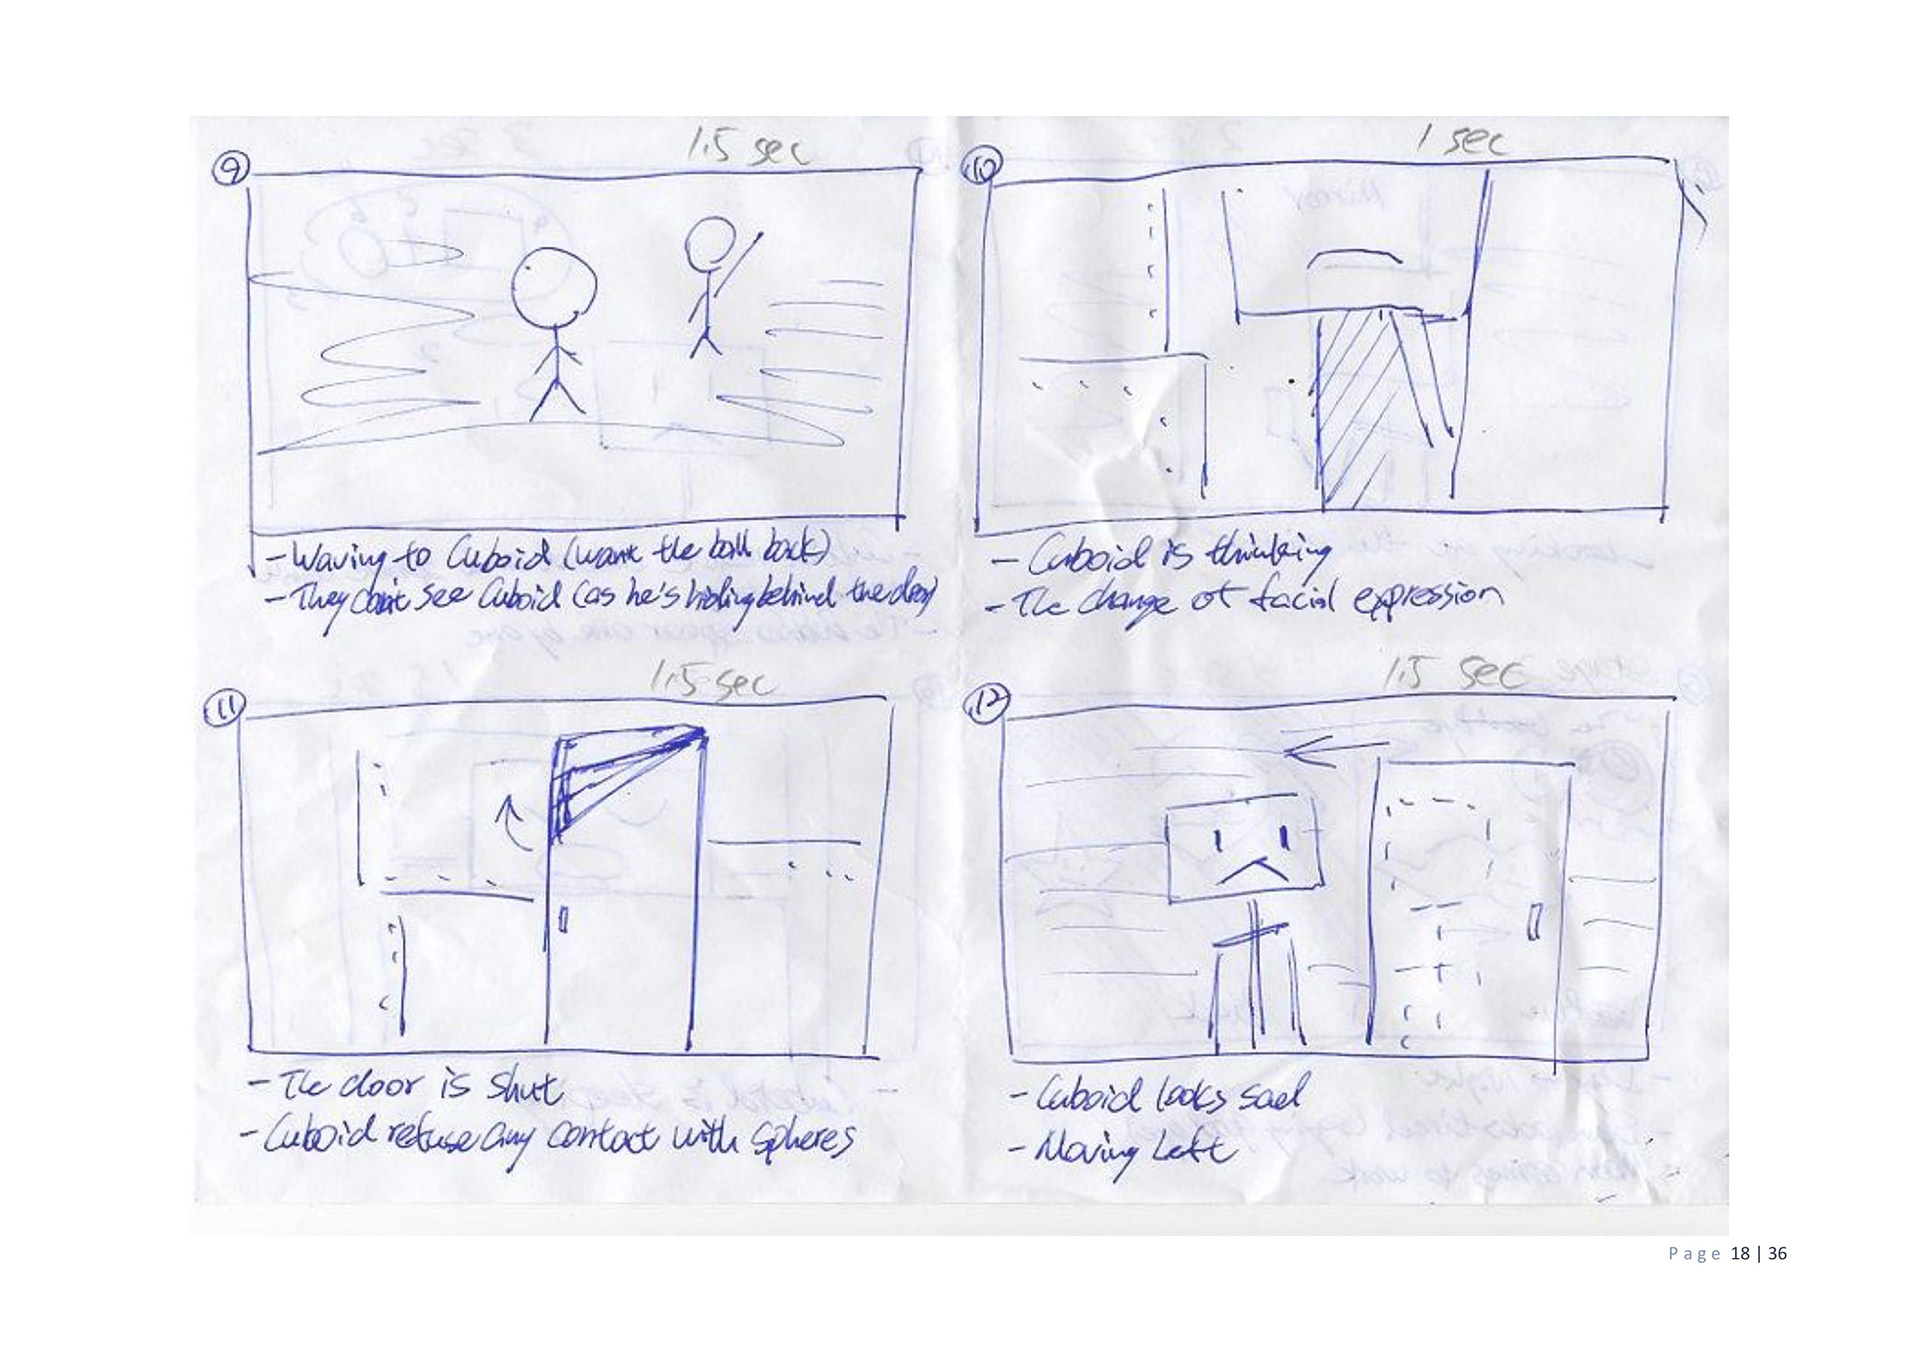 1.5 sec
9
- Waving to Cuboid (want the ball back)
- They can't see Cuboid (as he's hiding behind the door)
1 sec
10
- Cuboid is thinking
- The change of facial expression
1.5 sec
11
- The door is shut
- Cuboid refuse any contact with spheres
1.5 sec
12
- Cuboid looks sad
- Moving Left
Page 18 | 36